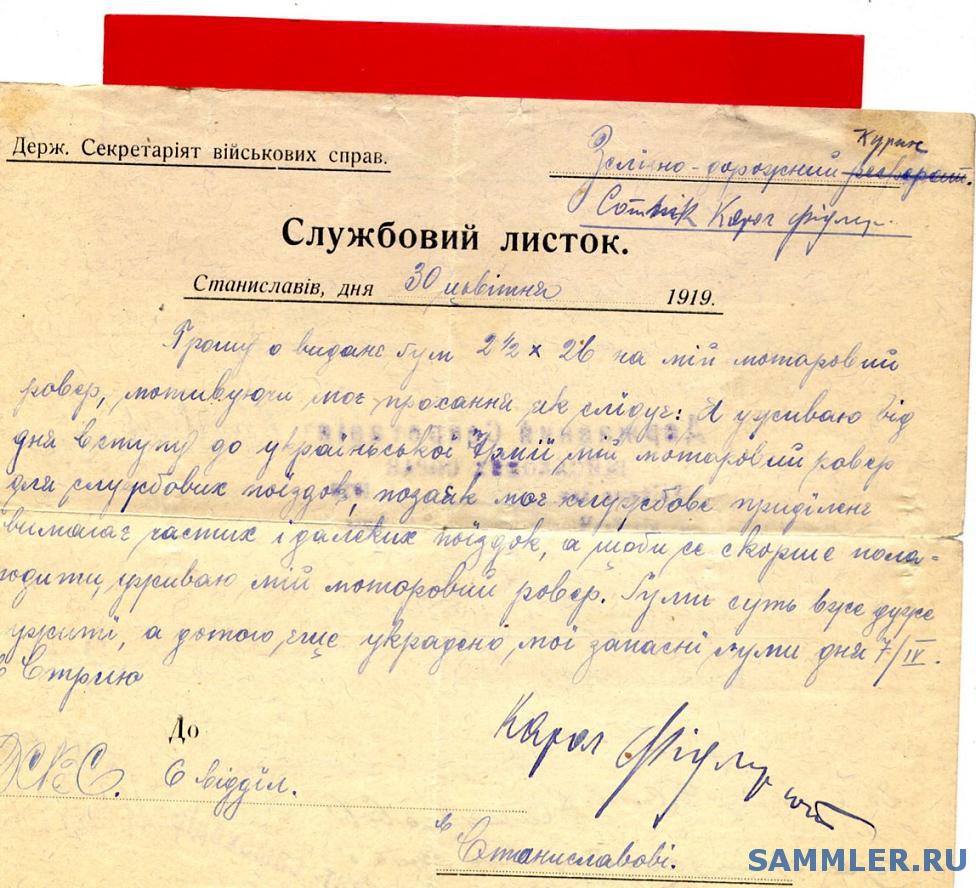 Держ. Секретаріят військових справ.
Курінь
Зелізно-дорожний
Сотник Кароль
Службовий листок.
Станиславів, дня 30 цьвітня 1919.
Прошу о виданє ґум 2 1/2 x 26 на мій мотаровий
ровер, мотивуючи моє прохання як слїдує: Я уживаю від
дня вступу до україньської Армії мій мотаровий ровер
для службових поїздок, позаяк моє службове приділенє
вимагає частих і далеких поїздок, а щоби се скорше пола-
годити, уживаю мій моторовий ровер. Ґуми суть вже дуже
ужиті, а дотого еще украдено мої запасні ґуми дня 7/IV.
в Стрию
До
Д.С.В.С. 6 відділ.
Кароль
в
Станиславові.
SAMMLER.RU